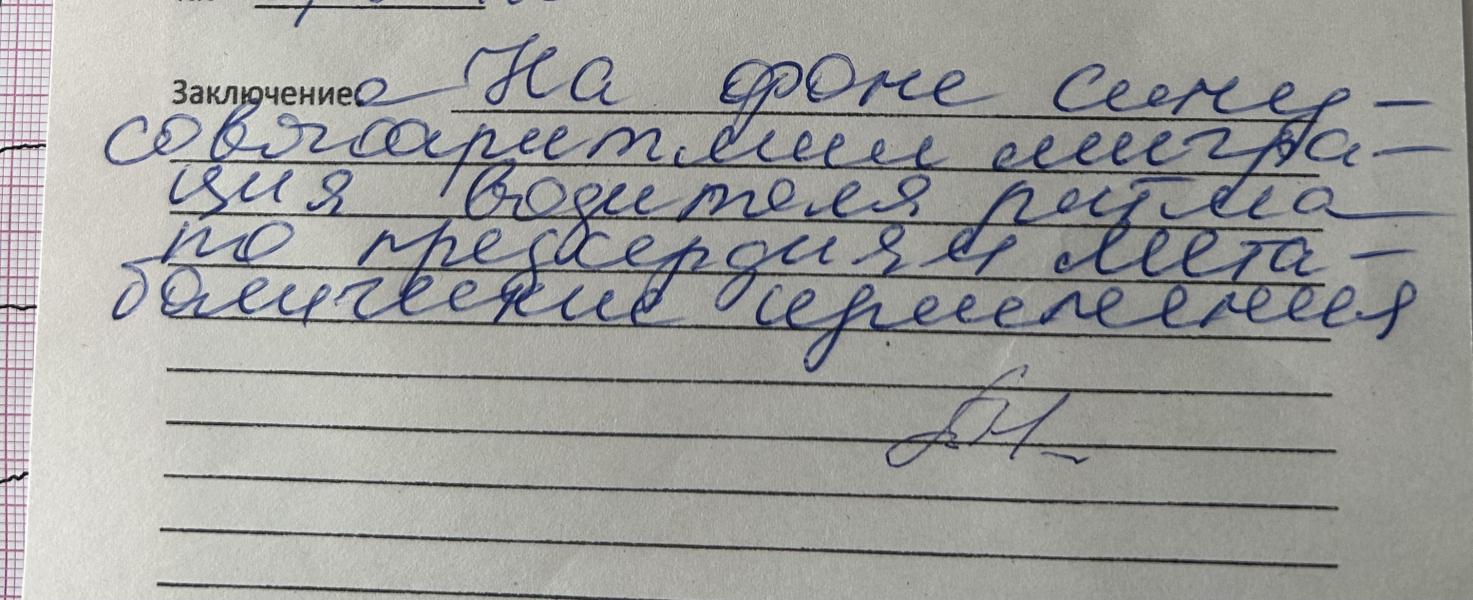 Заключение На фоне сину-
совой аритмии мигра-
ция водителя ритма
по предсердиям мета-
болические изменения